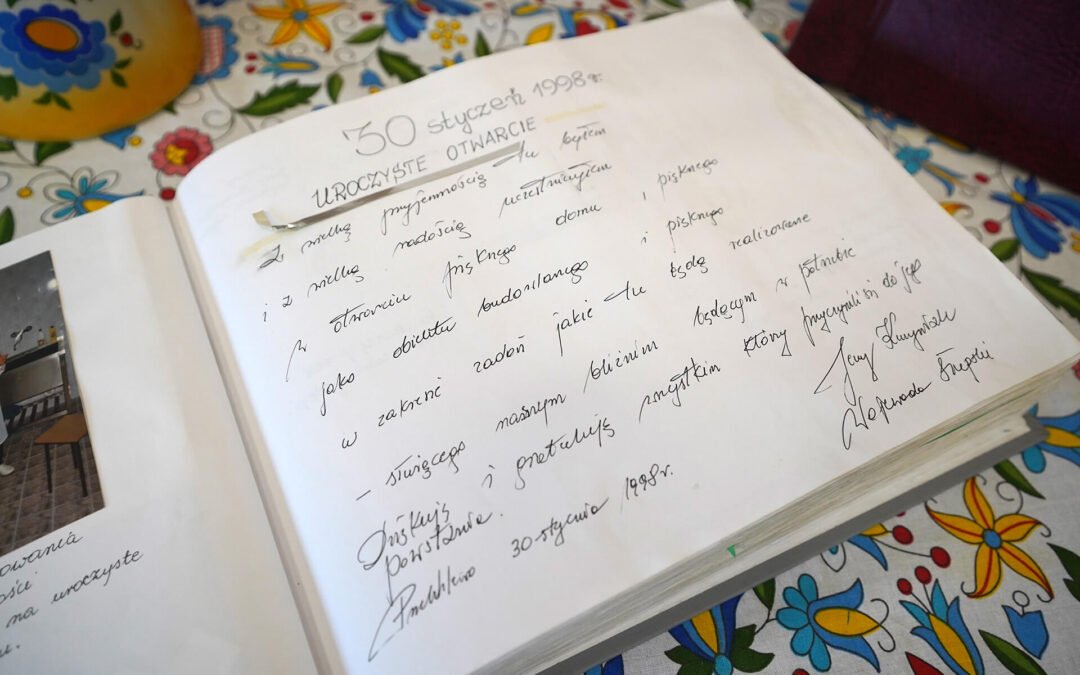 owania
ości
na uroczyste
u.
30 styczeń 1998 r.
UROCZYSTE OTWARCIE
Z wielką przyjemnością tu byłem
i z wielką radością uczestniczyłem
w otwarciu pięknego domu i pięknego
jako obiektu budowlanego i pięknego
w zakresie zadań jakie tu będą realizowane
– służącego naszym bliźnim będącym w potrzebie
Dziękuję i gratuluję wszystkim który przyczynili się do jego
powstania.
30 stycznia 1998 r.
Jerzy
Wojewoda Słupski